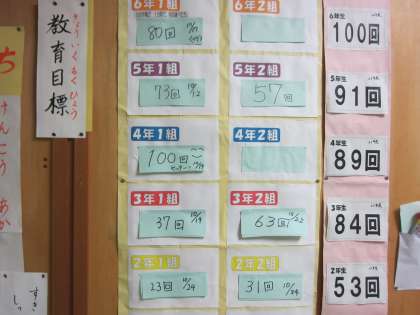 教育目標
きょういくもくひょう
ち
けんこう
あか
6年1組
80回
6年2組
5年1組
73回 10/12
5年2組
57回
4年1組
100回
4年2組
3年1組
37回 10/19
3年2組
63回 10/22
2年1組
23回 10/24
2年2組
31回 10/24
6年生
100回
5年生
91回
4年生
89回
3年生
84回
2年生
53回